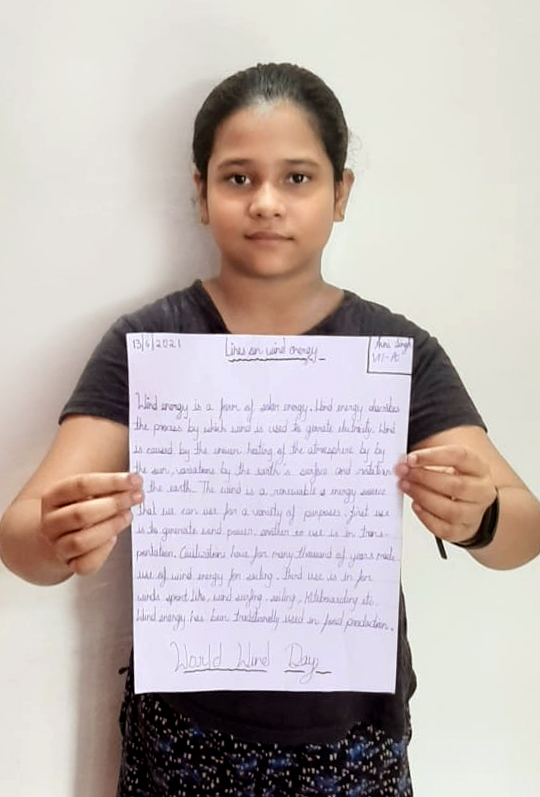 13/6/2021
Lines on wind energy
Singh
VII-A
Wind energy is a form of solar energy. Wind energy describes
the process by which wind is used to genrate electricity. Wind
is caused by the uneven heating of the atmosphere by by
the sun, variations by the earth's surface and rotation
the earth. The wind is a renewable energy source
that we can use for a variety of purposes. First use
is to generate wind power, another use is in trans-
portation. Civilizations have for many thousand of years made
use of wind energy for sailing. Third use is in for
winds sport like, wind surfing, sailing, Kiteboarding etc.
Wind energy has been traditionally used in food production.
World Wind Day